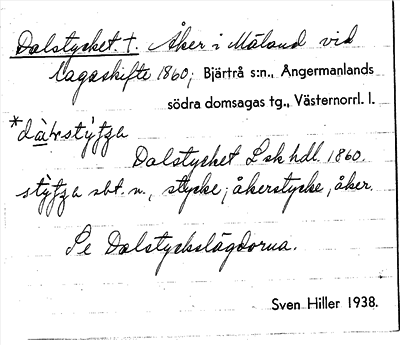 Dalstycket. †. Åker i Mäland vid
lagaskifte 1860; Bjärtrå s:n., Ångermanlands
södra domsagas tg., Västernorrl. l.
Dalstycket L sk hdl. 1860.
sbt. n., stycke; åkerstycke, åker.
Se Dalstyckslägdorna.
Sven Hiller 1938.